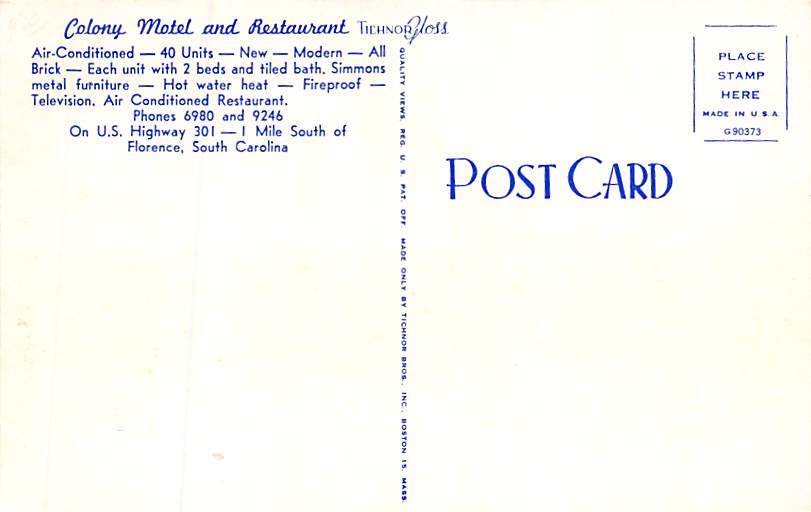 Colony Motel and Restaurant
TICHNOR Gloss
Air-Conditioned — 40 Units — New — Modern — All
Brick — Each unit with 2 beds and tiled bath. Simmons
metal furniture — Hot water heat — Fireproof —
Television. Air Conditioned Restaurant.
Phones 6980 and 9246
On U.S. Highway 301 — 1 Mile South of
Florence, South Carolina
QUALITY VIEWS REG. U. S. PAT. OFF. MADE ONLY BY TICHNOR BROS., INC., BOSTON 15, MASS.
PLACE
STAMP
HERE
MADE IN U.S.A
G90373
POST CARD